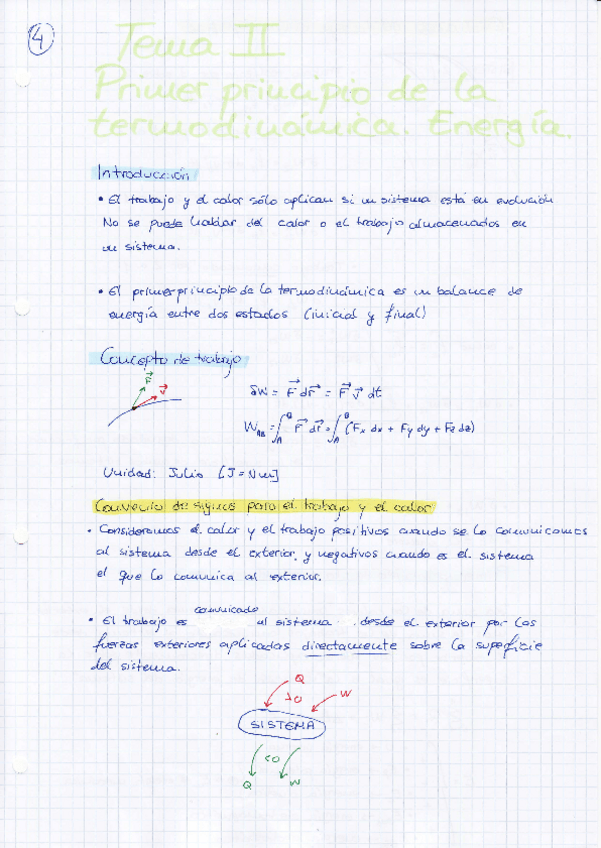 4
Tema II
Primer principio de la
termodinámica. Energía.
Introducción
• El trabajo y el calor sólo aplican si un sistema está en evolución
No se puede hablar del calor o el trabajo almacenados en
un sistema.
• El primer principio de la termodinámica es un balance de
energía entre dos estados (inicial y final)
Concepto de trabajo
F⃗ v⃗
δW = F⃗ dr⃗ = F⃗ v⃗ dt
W_AB = ∫_A^B F⃗ dr⃗ = ∫_A^B (Fx dx + Fy dy + Fz dz)
Unidad: Julio [J = Nm]
Convenio de signos para el trabajo y el calor
• Consideramos el calor y el trabajo positivos cuando se lo comunicamos
al sistema desde el exterior, y negativos cuando es el sistema
el que lo comunica al exterior.
• El trabajo es comunicado al sistema desde el exterior por las
fuerzas exteriores aplicadas directamente sobre la superficie
del sistema.
Q
>0 W
SISTEMA
<0
Q W